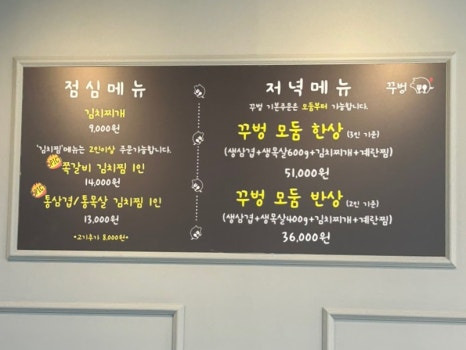 점심메뉴
김치찌개
9,000원
'김치찜'메뉴는 2인이상 주문가능합니다.
쪽갈비 김치찜 1인
14,000원
통삼겹/통목살 김치찜 1인
13,000원
*고기추가 8,000원*
저녁메뉴
꾸벙
꾸벙 기본주문은 모둠부터 가능합니다.
꾸벙 모둠 한상 (3인 기준)
(생삼겹+생목살600g+김치찌개+계란찜)
51,000원
꾸벙 모둠 반상 (2인 기준)
(생삼겹+생목살400g+김치찌개+계란찜)
36,000원